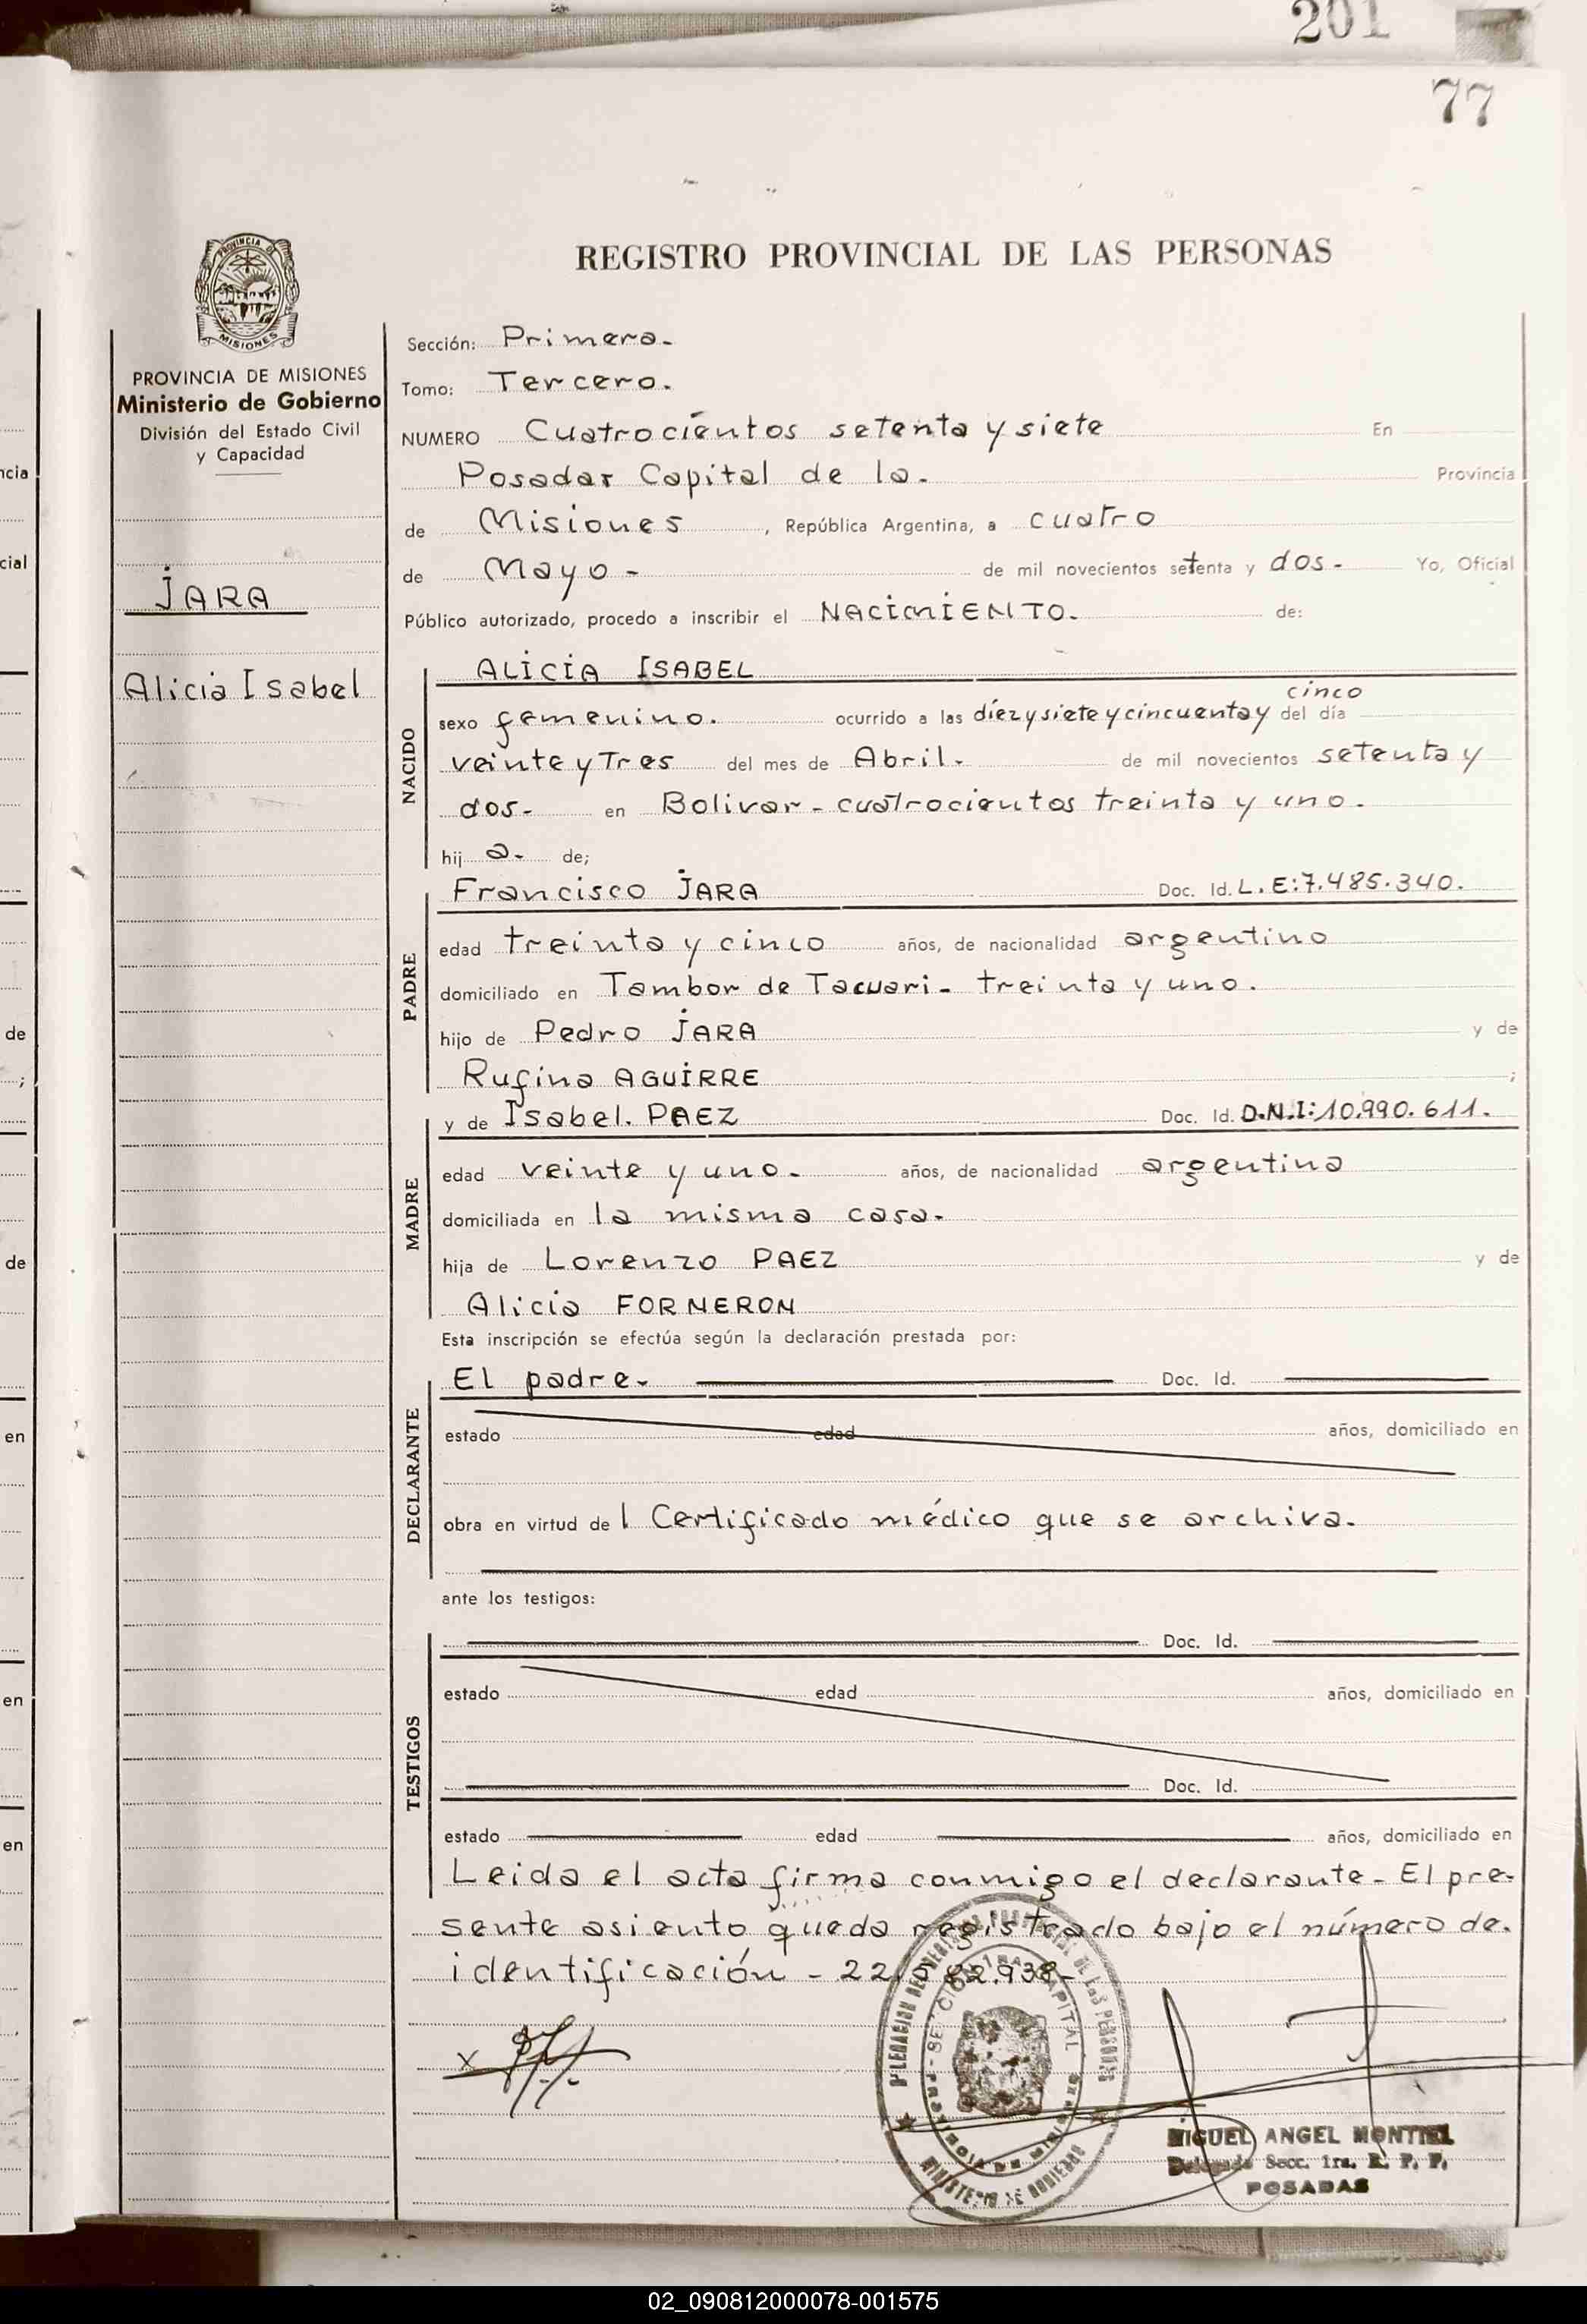 201
77
REGISTRO PROVINCIAL DE LAS PERSONAS
PROVINCIA DE MISIONES
Ministerio de Gobierno
División del Estado Civil
y Capacidad
JARA
Alicia Isabel
Sección: Primera.
Tomo: Tercero.
NUMERO Cuatrocientos setenta y siete En
Posadas Capital de la. Provincia
de Misiones, República Argentina, a cuatro
de Mayo - de mil novecientos setenta y dos. Yo, Oficial
Público autorizado, procedo a inscribir el NACIMIENTO. de:
NACIDO
ALICIA ISABEL
cinco
sexo femenino. ocurrido a las diezysiete y cincuenta y del día
veinte y Tres del mes de Abril. de mil novecientos setenta y
dos. en Bolivar - cuatrocientos treinta y uno.
hij a. de;
PADRE
Francisco JARA Doc. Id. L.E:7.485.340.
edad treinta y cinco años, de nacionalidad argentino
domiciliado en Tambor de Tacuari - treinta y uno.
hijo de Pedro JARA y de
Rufina AGUIRRE ;
MADRE
y de Isabel. PAEZ Doc. Id. D.N.I:10.990.611.
edad veinte y uno. años, de nacionalidad argentina
domiciliada en la misma casa.
hija de Lorenzo PAEZ y de
Alicia FORNERON
Esta inscripción se efectúa según la declaración prestada por:
DECLARANTE
El padre. Doc. Id.
estado edad años, domiciliado en
obra en virtud de l Certificado médico que se archiva.
ante los testigos:
TESTIGOS
Doc. Id.
estado edad años, domiciliado en
Doc. Id.
estado edad años, domiciliado en
Leida el acta firma conmigo el declarante - El pre-
sente asiento queda registrado bajo el número de.
identificación -
MIGUEL ANGEL MONTIEL
Delegado Secc. 1ra. R. P. P.
POSADAS
02_090812000078-001575